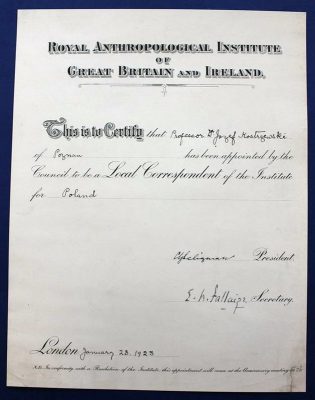 ROYAL ANTHROPOLOGICAL INSTITUTE
OF
GREAT BRITAIN AND IRELAND.
This is to Certify that Professor Dr Józef Kostrzewski
of Poznan has been appointed by the
Council to be a Local Correspondent of the Institute
for Poland
President.
Secretary.
London January 23. 1923
N.B. In conformity with a Resolution of the Institute, this appointment will cease at the Anniversary meeting